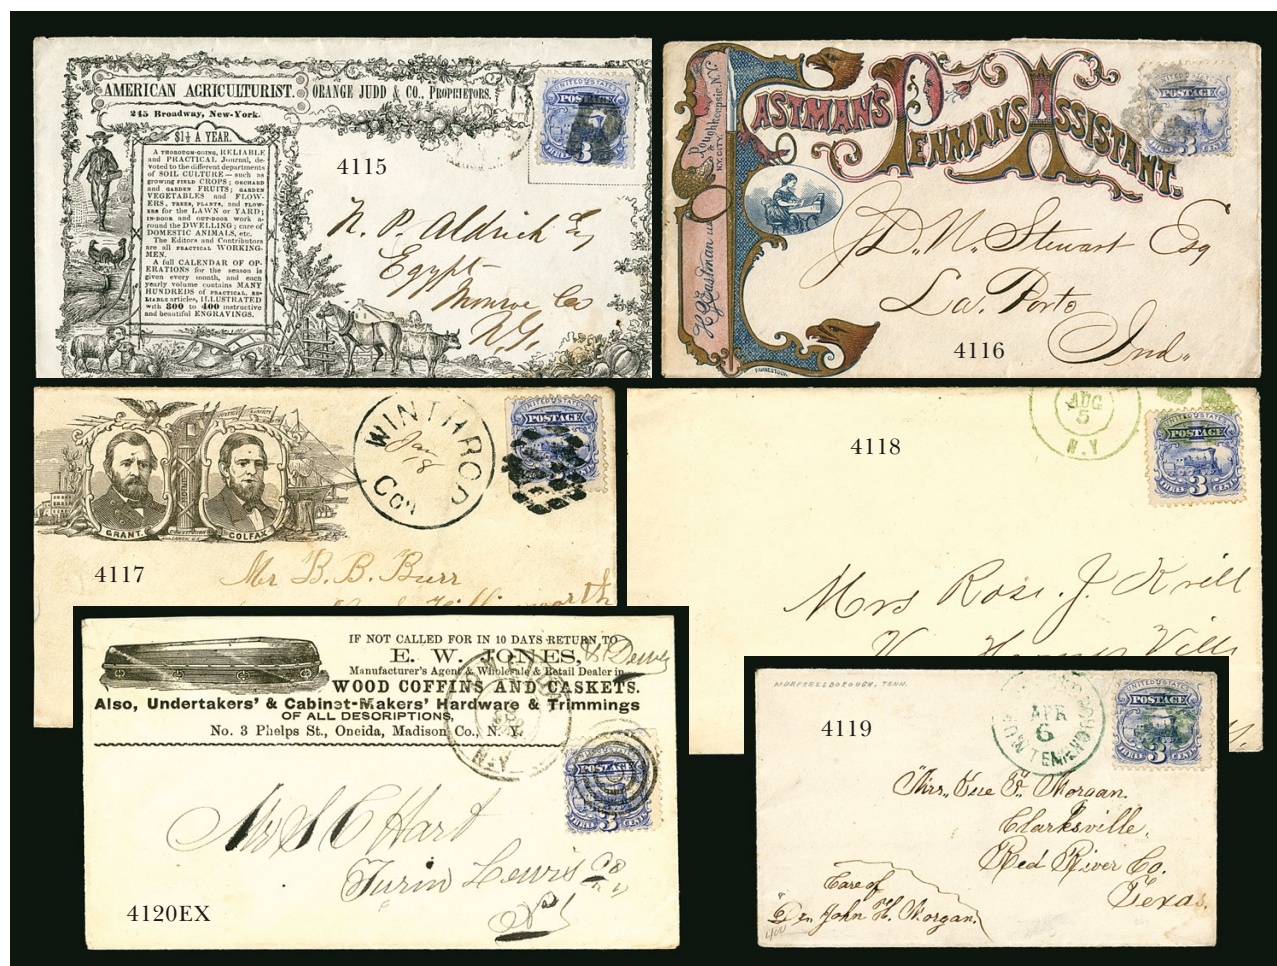 AMERICAN AGRICULTURIST.
ORANGE JUDD & CO., PROPRIETORS.
245 Broadway, New-York.
$1½ A YEAR.
A THOROUGH-GOING, RELIABLE
and PRACTICAL Journal, de-
voted to the different departments
of SOIL CULTURE—such as
growing FIELD CROPS; ORCHARD
and GARDEN FRUITS; GARDEN
VEGETABLES and FLOW-
ERS, TREES, PLANTS, and FLOW-
ERS for the LAWN or YARD;
IN-DOOR and OUT-DOOR work a-
round the DWELLING; care of
DOMESTIC ANIMALS, etc.
The Editors and Contributors
are all PRACTICAL WORKING-
MEN.
A full CALENDAR OF OP-
ERATIONS for the season is
given every month, and each
yearly volume contains MANY
HUNDREDS of PRACTICAL, RE-
LIABLE articles, ILLUSTRATED
with 300 to 400 instructive
and beautiful ENGRAVINGS.
UNITED STATES
POSTAGE
3
4115
N. P. Aldrich Esq
Egypt
Monroe Co
N.Y.
EASTMAN'S PENMANS ASSISTANT.
Poughkeepsie, N.Y.
N.Y. CITY.
H G Eastman
UNITED STATES
POSTAGE
3
J. W. Stewart Esq
La Porte
Ind.
4116
GRANT.
COLFAX
WINTHROP
Jan 8
Con
UNITED STATES
POSTAGE
4117
Mr B. B. Burr
AUG
5
N.Y
UNITED STATES
POSTAGE
THREE 3 CENTS
4118
Mrs Rose. J. Krill
Ville
IF NOT CALLED FOR IN 10 DAYS RETURN TO
E. W. JONES,
Manufacturer's Agent & Wholesale & Retail Dealer in
WOOD COFFINS AND CASKETS.
Also, Undertakers' & Cabinet-Makers' Hardware & Trimmings
OF ALL DESCRIPTIONS,
No. 3 Phelps St., Oneida, Madison Co., N. Y.
N.Y.
POSTAGE
THREE 3 CENTS
Mr S C Hart
Turin Lewis Co
N Y
4120EX
MURFREESBOROUGH, TENN.
APR
6
TENN
UNITED STATES
POSTAGE
THREE 3 CENTS
4119
Mrs. Sue F. Morgan.
Clarksville,
Red River Co.
Texas.
Care of
Gen John H. Morgan.